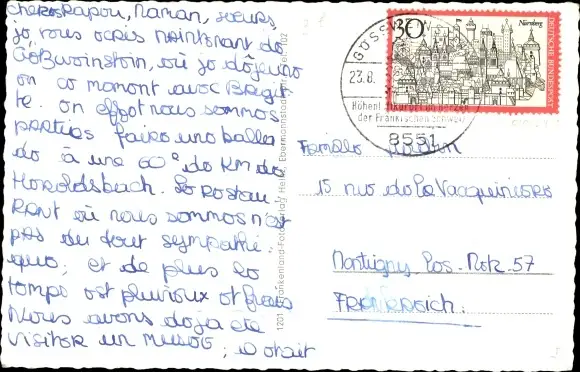 chers Papou, Maman, sœurs,
je vous ecris maintenant de
Gößweinstein, où je déjeune
en ce moment avec Brigit
te. On effet nous sommes
parties faire une balla
de à une 60° de Km de
Heroldsbach. Le restau
rant où nous sommes n'est
pas du tout sympathi.
que; et de plus le
temps est pluvieux et frais
Nous avons déjà été
visiter un musée; c'était
Famille
15 rue de la Vacquinière
Montigny les-Metz. 57
FRANKREICH.
30
Nürnberg
DEUTSCHE BUNDESPOST
GÖSSW
23.8.
Höhenluftkurort im Herzen
der Fränkischen Schweiz
8551
1201 Frankenland-Fotoverlag Heller, Ebermannstadt